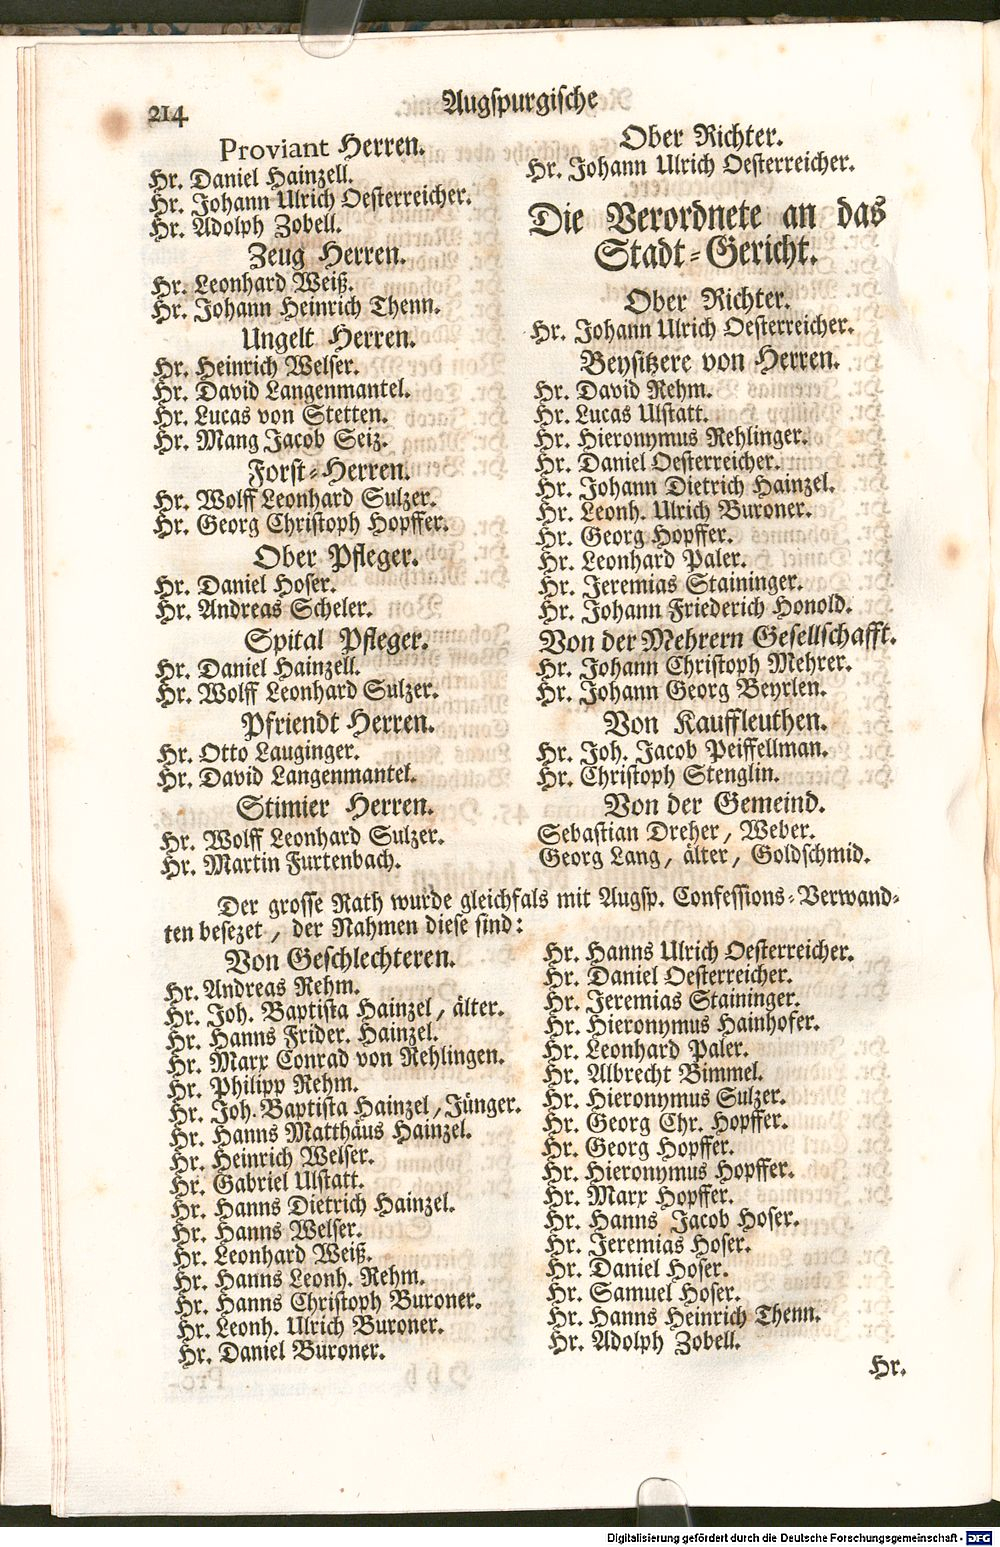 214
Augspurgische
Proviant Herren.
Hr. Daniel Hainzell.
Hr. Johann Ulrich Oesterreicher.
Hr. Adolph Zobell.
Zeug Herren.
Hr. Leonhard Weiß.
Hr. Johann Heinrich Thenn.
Ungelt Herren.
Hr. Heinrich Welser.
Hr. David Langenmantel.
Hr. Lucas von Stetten.
Hr. Mang Jacob Seiz.
Forst-Herren.
Hr. Wolff Leonhard Sulzer.
Hr. Georg Christoph Hopffer.
Ober Pfleger.
Hr. Daniel Hoser.
Hr. Andreas Scheler.
Spital Pfleger.
Hr. Daniel Hainzell.
Hr. Wolff Leonhard Sulzer.
Pfriendt Herren.
Hr. Otto Lauginger.
Hr. David Langenmantel.
Stimier Herren.
Hr. Wolff Leonhard Sulzer.
Hr. Martin Furtenbach.
Ober Richter.
Hr. Johann Ulrich Oesterreicher.
Die Verordnete an das
Stadt-Gericht.
Ober Richter.
Hr. Johann Ulrich Oesterreicher.
Beysitzere von Herren.
Hr. David Rehm.
Hr. Lucas Ulstatt.
Hr. Hieronymus Rehlinger.
Hr. Daniel Oesterreicher.
Hr. Johann Dietrich Hainzel.
Hr. Leonh. Ulrich Buroner.
Hr. Georg Hopffer.
Hr. Leonhard Paler.
Hr. Jeremias Staininger.
Hr. Johann Friederich Honold.
Von der Mehrern Gesellschafft.
Hr. Johann Christoph Mehrer.
Hr. Johann Georg Beyrlen.
Von Kauffleuthen.
Hr. Joh. Jacob Peiffellman.
Hr. Christoph Stenglin.
Von der Gemeind.
Sebastian Dreher, Weber.
Georg Lang, älter, Goldschmid.
Der grosse Rath wurde gleichfals mit Augsp. Confessions-Verwand-
ten besezet, der Nahmen diese sind:
Von Geschlechteren.
Hr. Andreas Rehm.
Hr. Joh. Baptista Hainzel, älter.
Hr. Hanns Frider. Hainzel.
Hr. Marx Conrad von Rehlingen.
Hr. Philipp Rehm.
Hr. Joh. Baptista Hainzel, Jünger.
Hr. Hanns Matthäus Hainzel.
Hr. Heinrich Welser.
Hr. Gabriel Ulstatt.
Hr. Hanns Dietrich Hainzel.
Hr. Hanns Welser.
Hr. Leonhard Weiß.
Hr. Hanns Leonh. Rehm.
Hr. Hanns Christoph Buroner.
Hr. Leonh. Ulrich Buroner.
Hr. Daniel Buroner.
Hr. Hanns Ulrich Oesterreicher.
Hr. Daniel Oesterreicher.
Hr. Jeremias Staininger.
Hr. Hieronymus Hainhofer.
Hr. Leonhard Paler.
Hr. Albrecht Bimmel.
Hr. Hieronymus Sulzer.
Hr. Georg Chr. Hopffer.
Hr. Georg Hopffer.
Hr. Hieronymus Hopffer.
Hr. Marx Hopffer.
Hr. Hanns Jacob Hoser.
Hr. Jeremias Hoser.
Hr. Daniel Hoser.
Hr. Samuel Hoser.
Hr. Hanns Heinrich Thenn.
Hr. Adolph Zobell.
Hr.
Digitalisierung gefördert durch die Deutsche Forschungsgemeinschaft - DFG